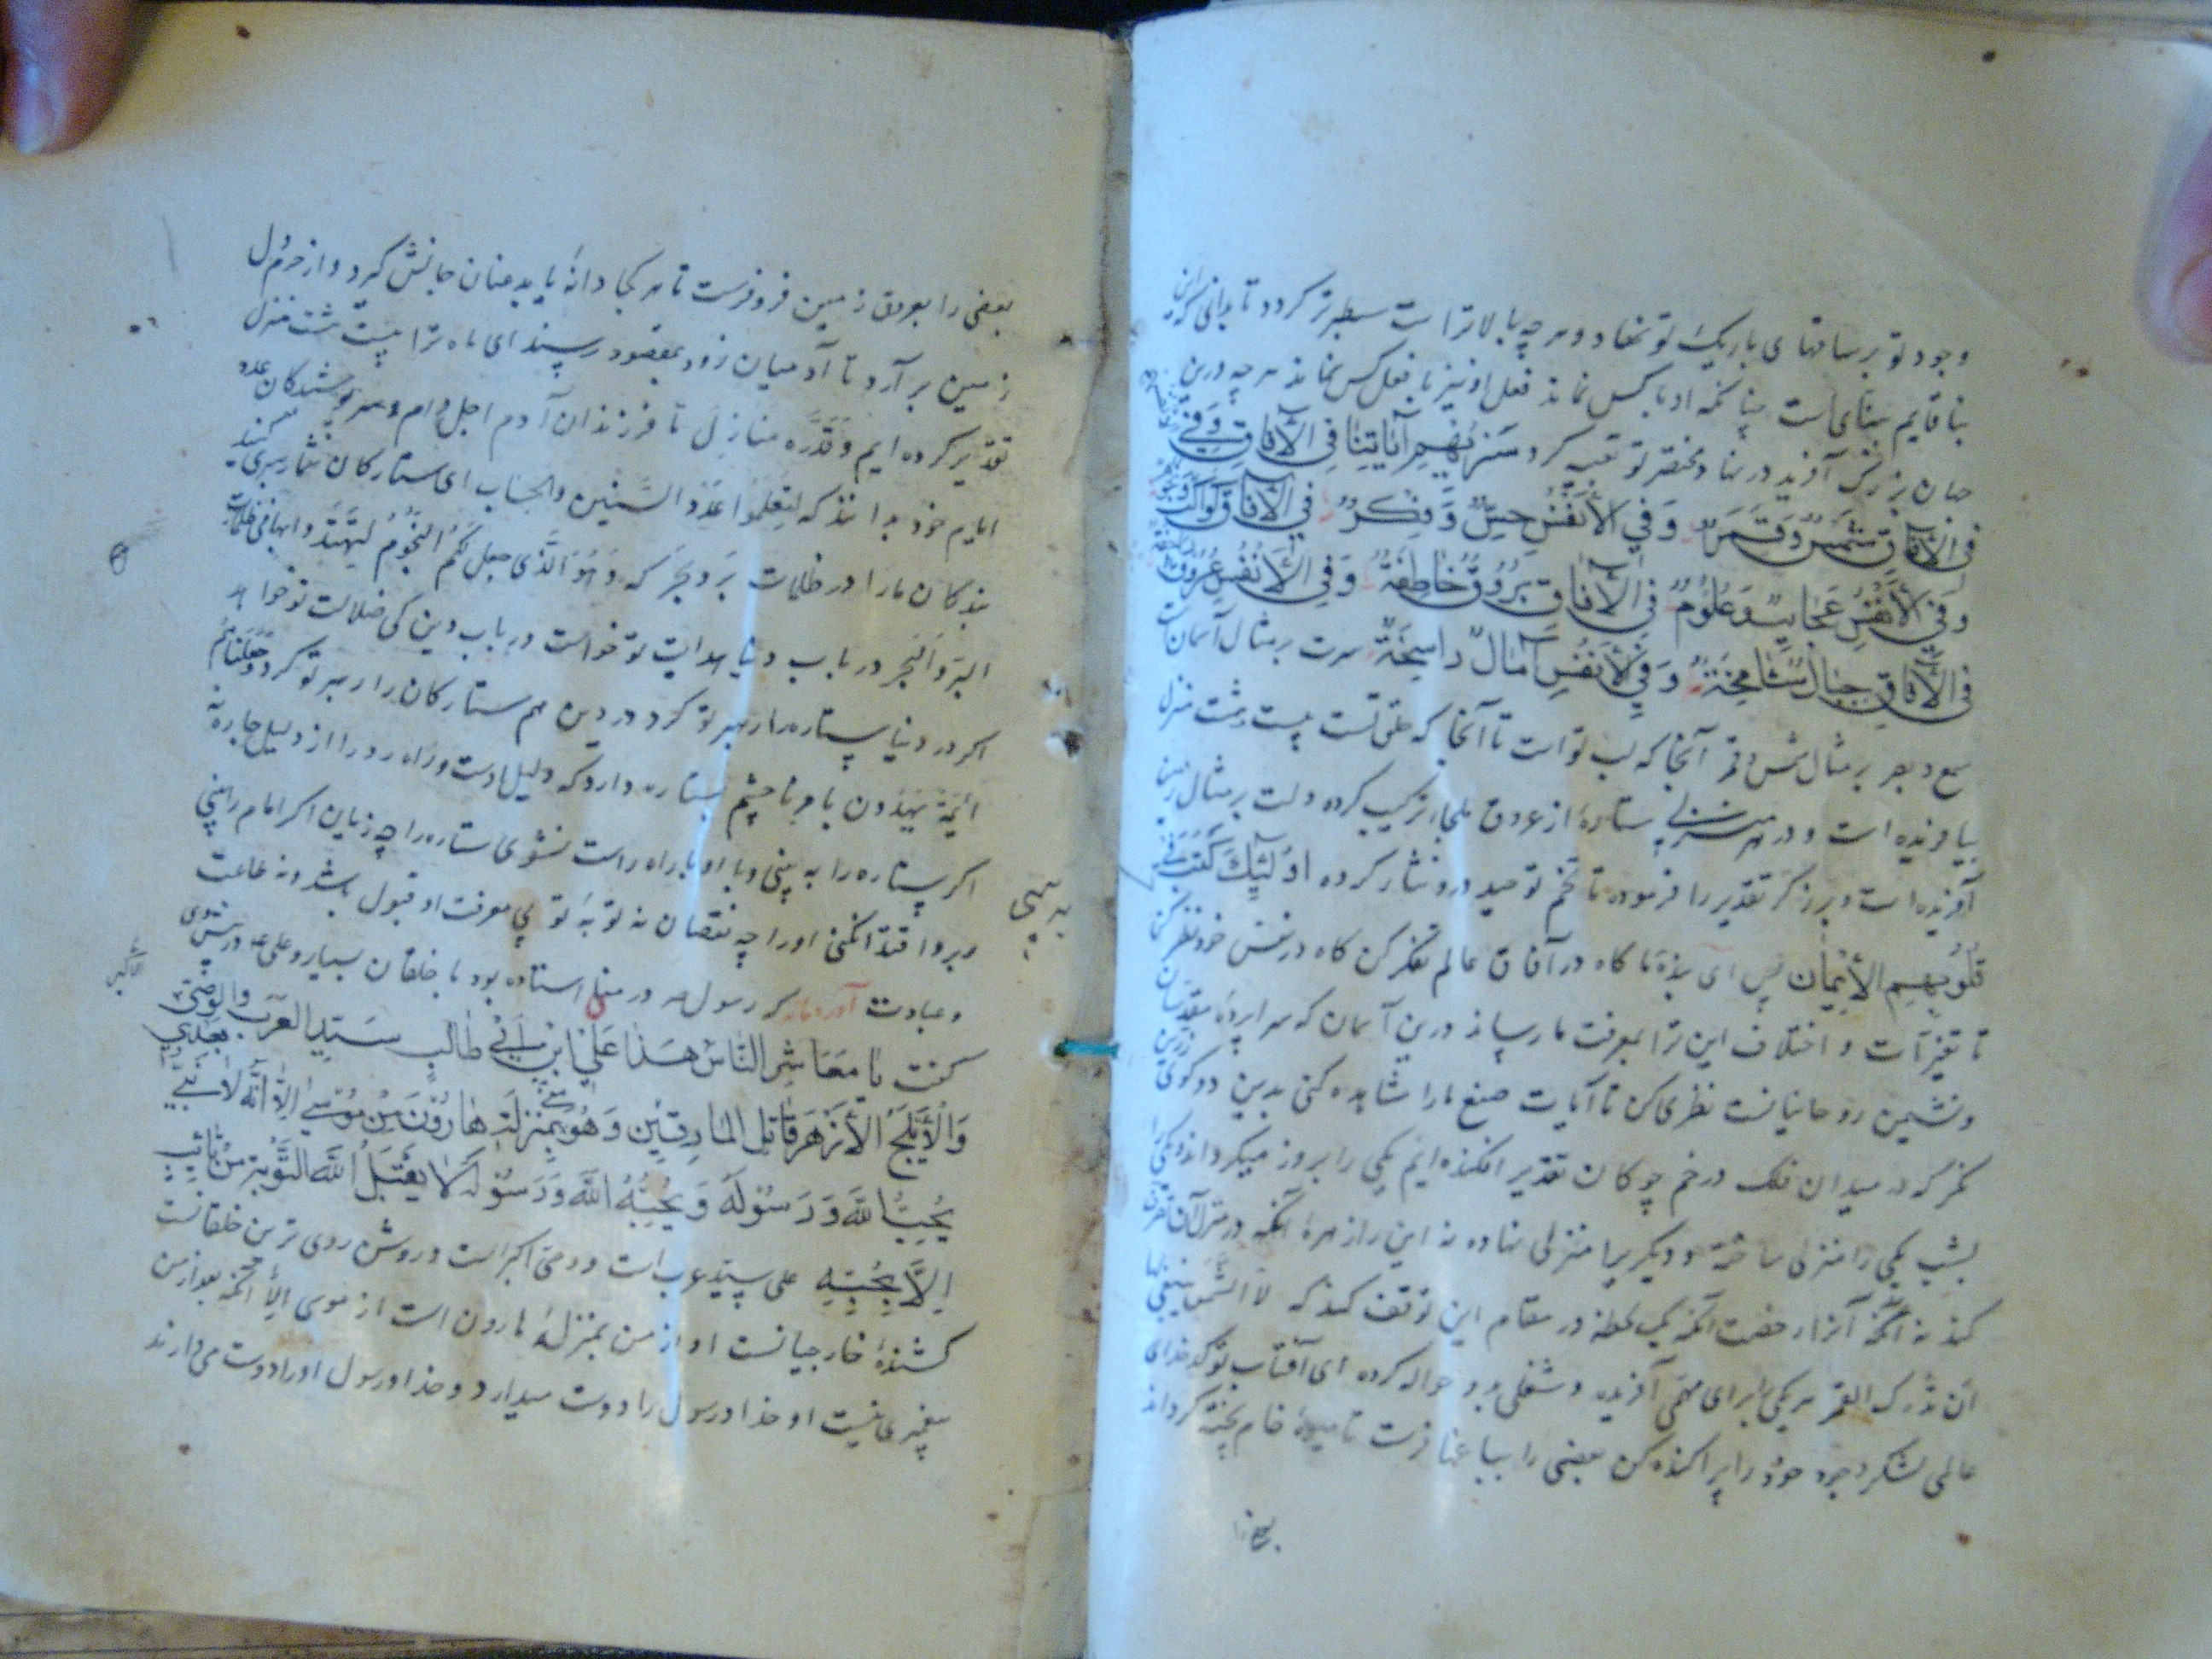 وجود تو بر ساقهای باریک تو نهاد و هر چه بالاتر است سطبرتر کرد و تا بدانی که این
بنا قایم بنای است چنانکه او با کس نماند فعل او نیز با فعل کس نماند هر چه درین
جهان بزرک آفرید در نهاد مختصر تو تعبیه کرد سَنُرِيهِمْ آيَاتِنَا فِي الْآفَاقِ وَفِي
فِي الْآفَاقِ شَمْسٌ وَقَمَرٌ وَفِي الْأَنْفُسِ حِسٌّ وَفِكْرٌ فِي الْآفَاقِ كَوَاكِبُ وَنُجُومٌ
وَفِي الْأَنْفُسِ عَجَايِبُ وَعُلُومٌ فِي الْآفَاقِ بُرُوقٌ خَاطِفَةٌ وَفِي الْأَنْفُسِ عُرُوقٌ
فِي الْآفَاقِ جِبَالٌ شَامِخَةٌ وَفِي الْأَنْفُسِ آمَالٌ رَاسِخَةٌ سرت بر مثال آسمانست
سمع و بصر بر مثال شمس و قمر آنجا که لب تو است تا آنجا که حلق تست بیست و هشت منزل
بیافریده است و در هر منزلی ستارهٔ از عروق بجا ترکیب کرده دلت بر مثال زمین
آفریده است و برزکر تقدیر را فرموده تا تخم توحید درو نثار کرده اُولٰئِكَ كَتَبَ فِي
قُلُوبِهِمُ الْإِيمَان پس ای بندهٔ ما کاه در آفاق عالم تفکر کن کاه در نفس خود نظر کن
تا تغیرات و اختلاف این ترا بمعرفت ما رساند درین آسمان که سراپردهٔ مقدسان
و نشیمن روحانیانست نظری کن تا آیات صنع ما را مشاهده کنی بدین دو کوی زرین
نکر که در میدان فلک در خم چوکان تقدیر افکنده ایم یکی را بروز میکرداند و یکی را
بشب یکی را منزلی ساخته و دیکر را منزلی نهاده نه این را زهرهٔ آنکه در منزل آن نظر
کند نه آنکه آنرا رخصت آنکه یک لحظه در مقام این توقف کند که لا الشمس ینبغی لها
ان تدرک القمر هر یکی را برای مهمی آفریده و شغلی بدو حواله کرده ای آفتاب تو کدخدای
عالمی لشکر وجود خود را پراکنده کن بعضی را بباغها فرست تا میوهٔ خام پخته کرداند
بعضی را
بعضی را بعروق زمین فرو فرست تا هر کجا دانهٔ یابد عنان جانش کیرد و از خرم کل
زمین بر آرد تا آدمیان زود بمقصود رسند ای ماه ترا بیست و هشت منزل
تقدیر کرده ایم وَقَدَّرَهُ مَنَازِلَ تا فرزندان آدم اجل وام و عدد
ایام خود بدانند که لِتَعْلَمُوا عَدَدَ السِّنِينَ وَالْحِسَابَ ای ستارکان شما رهبری کنید
بندکان ما را در ظلمات بر و بحر که وَهُوَ الَّذِي جَعَلَ لَكُمُ النُّجُومَ لِتَهْتَدُوا بِهَا فِي ظُلُمَاتِ
الْبَرِّ وَالْبَحْرِ در باب دنیا هدایت تو خواست در باب دین کی ضلالت تو خواهد
اکر در دنیا ستاره را رهبر تو کرد در دین هم ستارکان را رهبر تو کرد وَجَعَلْنَاهُمْ
اَئِمَّةً يَهْدُونَ بِاَمْرِنَا چشم بستاره دارد که دلیل اوست و راه رو را از دلیل چاره نه
اکر ستاره را به بینی و با او براه راست نشوی ستاره را چه زیان اکر امام را بینی
و برو اقتدا نکنی او را چه نقصان نه توبهٔ تو بی معرفت او قبول باشد و نه طاعت
و عبادت آورده‌اند که رسول در منبر استاده بود با خلقان بسیار و علی در پیش وی
کفت يَا مَعَاشِرَ النَّاسِ هٰذَا عَلِيُّ ابْنُ اَبِي طَالِبٍ سَيِّدُ الْعَرَبِ وَالْوَصِيُّ
وَالْاَبْلَجُ الْاَزْهَرُ قَاتِلُ الْمَارِقِينَ وَهُوَ مِنِّي بِمَنْزِلَةِ هَارُونَ مِنْ مُوسٰى اِلَّا اَنَّهُ لَا نَبِيَّ بَعْدِي
يُحِبُّ اللّٰهَ وَرَسُولَهُ وَيُحِبُّهُ اللّٰهُ وَرَسُولُهُ لَا يَقْبَلُ اللّٰهُ التَّوْبَةَ مِنْ تَائِبٍ
اِلَّا بِحُبِّهِ علی سید عرب است و وصی اکبر است و روشن روی ترین خلقانست
کشندهٔ خارجیانست او از من بمنزلهٔ هارون است از موسی الا آنکه بعد از من
پیغمبری نیست او خدا و رسول را دوست میدارد و خدا و رسول او را دوست می دارند